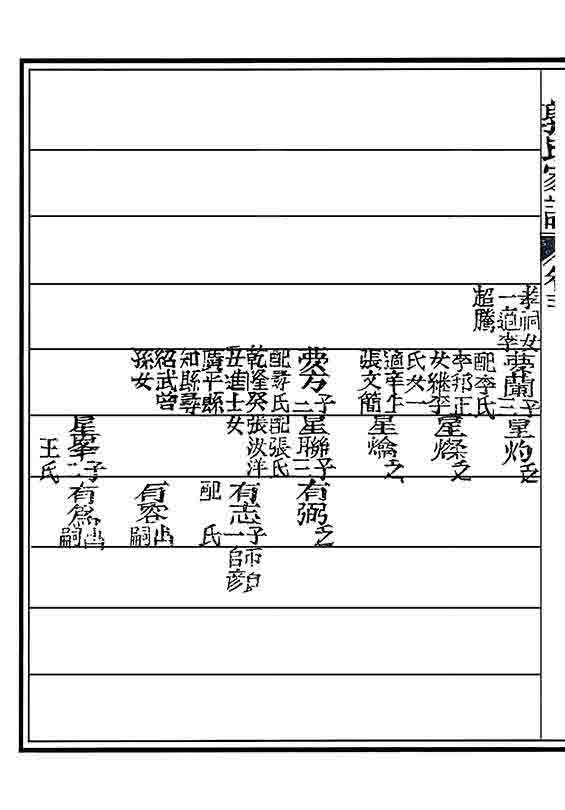 郭氏家譜 卷三
孝祠女
一適李
超騰
夢蘭 子三
配李氏
李邦正
女繼李
氏女一
適辛
張文簡
夢方 子二
配尋氏
乾隆癸
丑進士
廣平縣
知縣尋
紹武曾
孫女
星灼 之
星燦 之
星爚 之
星聯 子三
配張氏
張汝洋
女
星峯 子二
王氏
有弼 之
有志 子一
配 氏
有容 出嗣
有為 出嗣